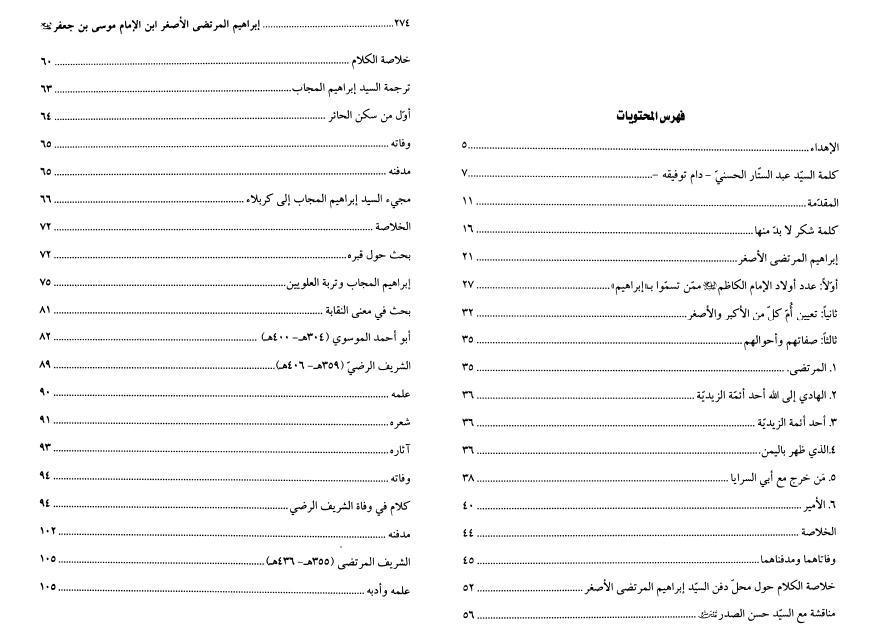 فهرس المحتويات
الإهداء ................ ٥
كلمة السيّد عبد الستّار الحسنيّ – دام توفيقه – ................ ٧
المقدّمة ................ ١١
كلمة شكر لا بدّ منها ................ ١٦
إبراهيم المرتضى الأصغر ................ ٢١
أوّلاً: عدد أولاد الإمام الكاظم ممّن تسمّوا بـ«إبراهيم» ................ ٢٧
ثانياً: تعيين أُمّ كلّ من الأكبر والأصغر ................ ٣٢
ثالثاً: صفاتهم وأحوالهم ................ ٣٥
١. المرتضى. ................ ٣٥
٢. الهادي إلى الله أحد أئمّة الزيديّة ................ ٣٦
٣. أحد أئمة الزيديّة ................ ٣٦
٤.الذي ظهر باليمن. ................ ٣٦
٥. مَن خرج مع أبي السرايا ................ ٣٨
٦. الأمير ................ ٤٠
الخلاصة ................ ٤٤
وفاتاهما ومدفناهما ................ ٤٥
خلاصة الكلام حول محلّ دفن السيّد إبراهيم المرتضى الأصغر ................ ٥٢
مناقشة مع السيّد حسن الصدر ................ ٥٦
٢٧٤ ................ إبراهيم المرتضى الأصغر ابن الإمام موسى بن جعفر
خلاصة الكلام ................ ٦٠
ترجمة السيد إبراهيم المجاب ................ ٦٣
أوّل من سكن الحائر ................ ٦٤
وفاته ................ ٦٥
مدفنه ................ ٦٥
مجيء السيد إبراهيم المجاب إلى كربلاء ................ ٦٦
الخلاصة ................ ٧٢
بحث حول قبره ................ ٧٢
إبراهيم المجاب وتربة العلويين ................ ٧٥
بحث في معنى النقابة ................ ٨١
أبو أحمد الموسوي (٣٠٤هـ– ٤٠٠هـ) ................ ٨٢
الشريف الرضيّ (٣٥٩هـ– ٤٠٦هـ) ................ ٨٩
علمه ................ ٩٠
شعره ................ ٩١
آثاره ................ ٩٣
وفاته ................ ٩٤
كلام في وفاة الشريف الرضي ................ ٩٤
مدفنه ................ ١٠٢
الشريف المرتضى (٣٥٥هـ– ٤٣٦هـ) ................ ١٠٥
علمه وأدبه ................ ١٠٥